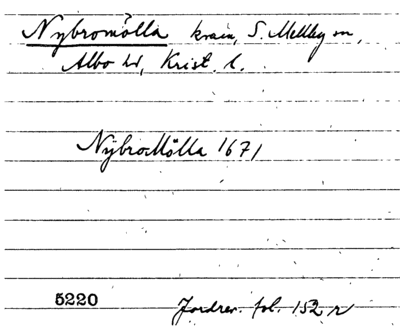 Nybromölla kvarn, S. Mellby sn,
Albo hd, Krist. l.
NÿbroMölla 1671
5220 Jordrev. fol. 152 r